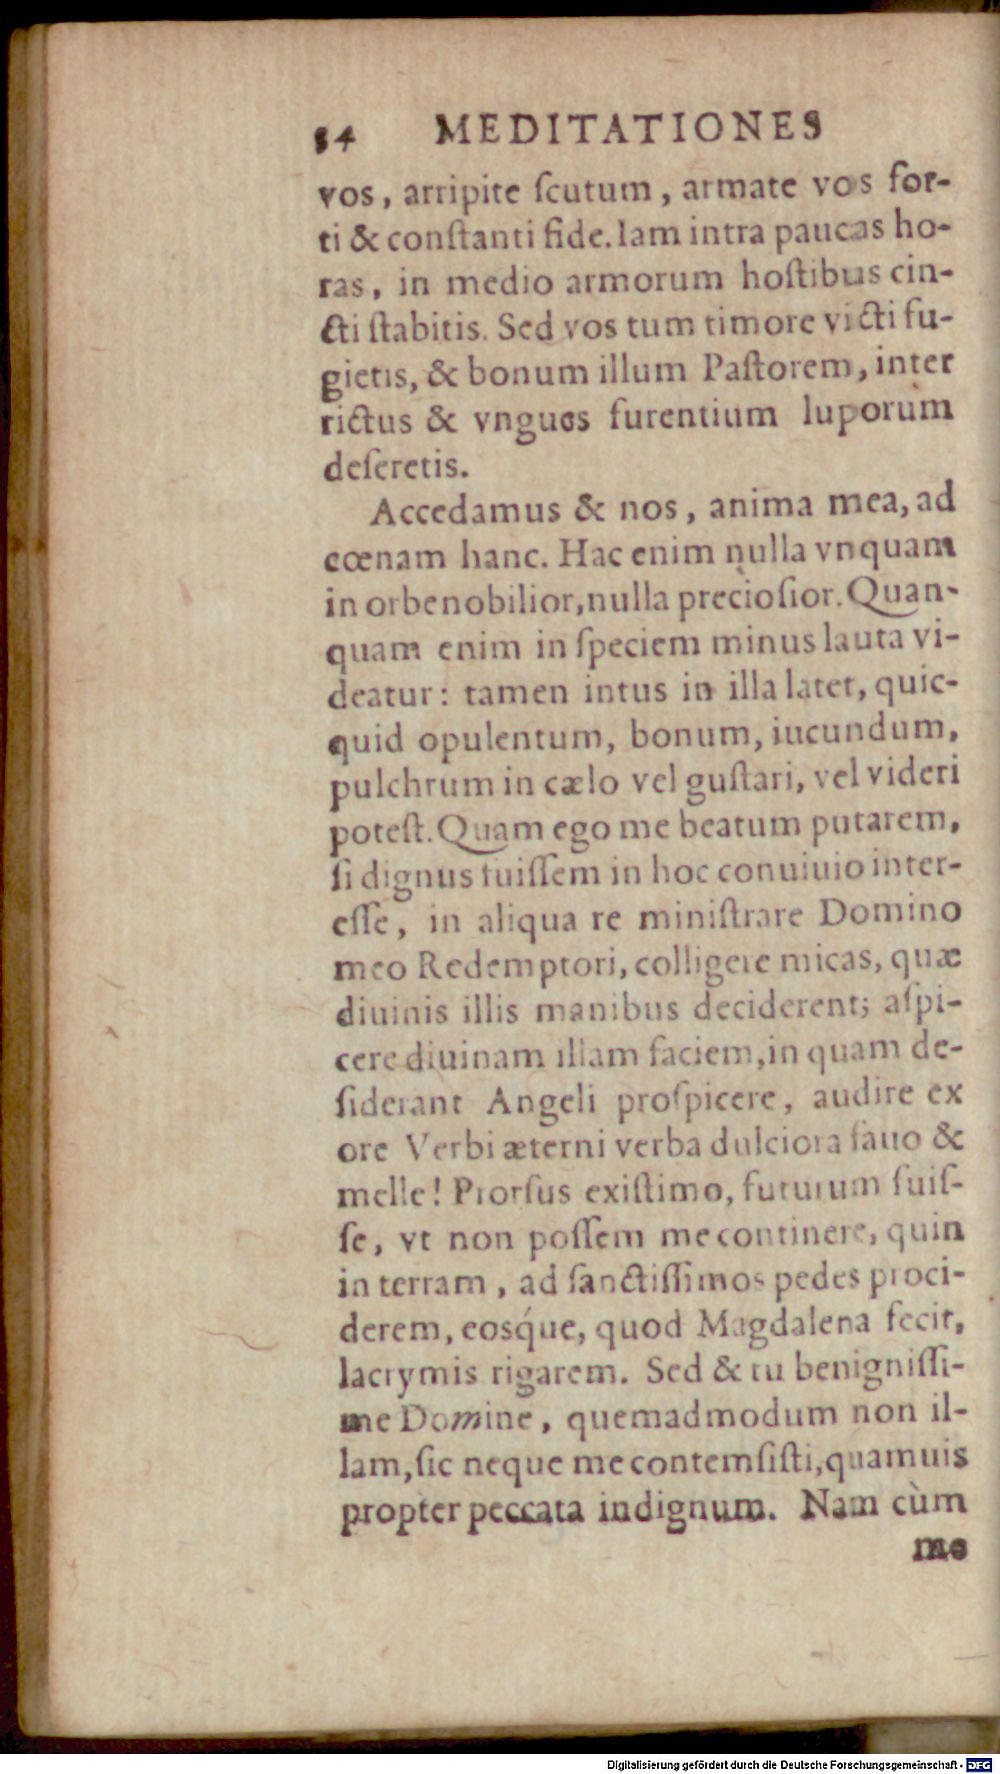 54 MEDITATIONES
vos, arripite ſcutum, armate vos for-
ti & conſtanti fide. Iam intra paucas ho-
ras, in medio armorum hoſtibus cin-
cti ſtabitis. Sed vos tum timore victi fu-
gietis, & bonum illum Paſtorem, inter
rictus & vngues furentium luporum
deſeretis.
Accedamus & nos, anima mea, ad
cœnam hanc. Hac enim nulla vnquam
in orbe nobilior, nulla precioſior. Quan-
quam enim in ſpeciem minus lauta vi-
deatur: tamen intus in illa latet, quic-
quid opulentum, bonum, iucundum,
pulchrum in cælo vel guſtari, vel videri
poteſt. Quam ego me beatum putarem,
ſi dignus fuiſſem in hoc conuiuio inter-
eſſe, in aliqua re miniſtrare Domino
meo Redemptori, colligere micas, quæ
diuinis illis manibus deciderent; aſpi-
cere diuinam illam faciem, in quam de-
ſiderant Angeli proſpicere, audire ex
ore Verbi æterni verba dulciora fauo &
melle! Prorſus exiſtimo, futurum fuiſ-
ſe, vt non poſſem me continere, quin
in terram, ad ſanctiſſimos pedes proci-
derem, eosq́ue, quod Magdalena fecit,
lacrymis rigarem. Sed & tu benigniſſi-
me Domine, quemadmodum non il-
lam, ſic neque me contemſiſti, quamuis
propter peccata indignum. Nam cùm
me
Digitalisierung gefördert durch die Deutsche Forschungsgemeinschaft - DFG